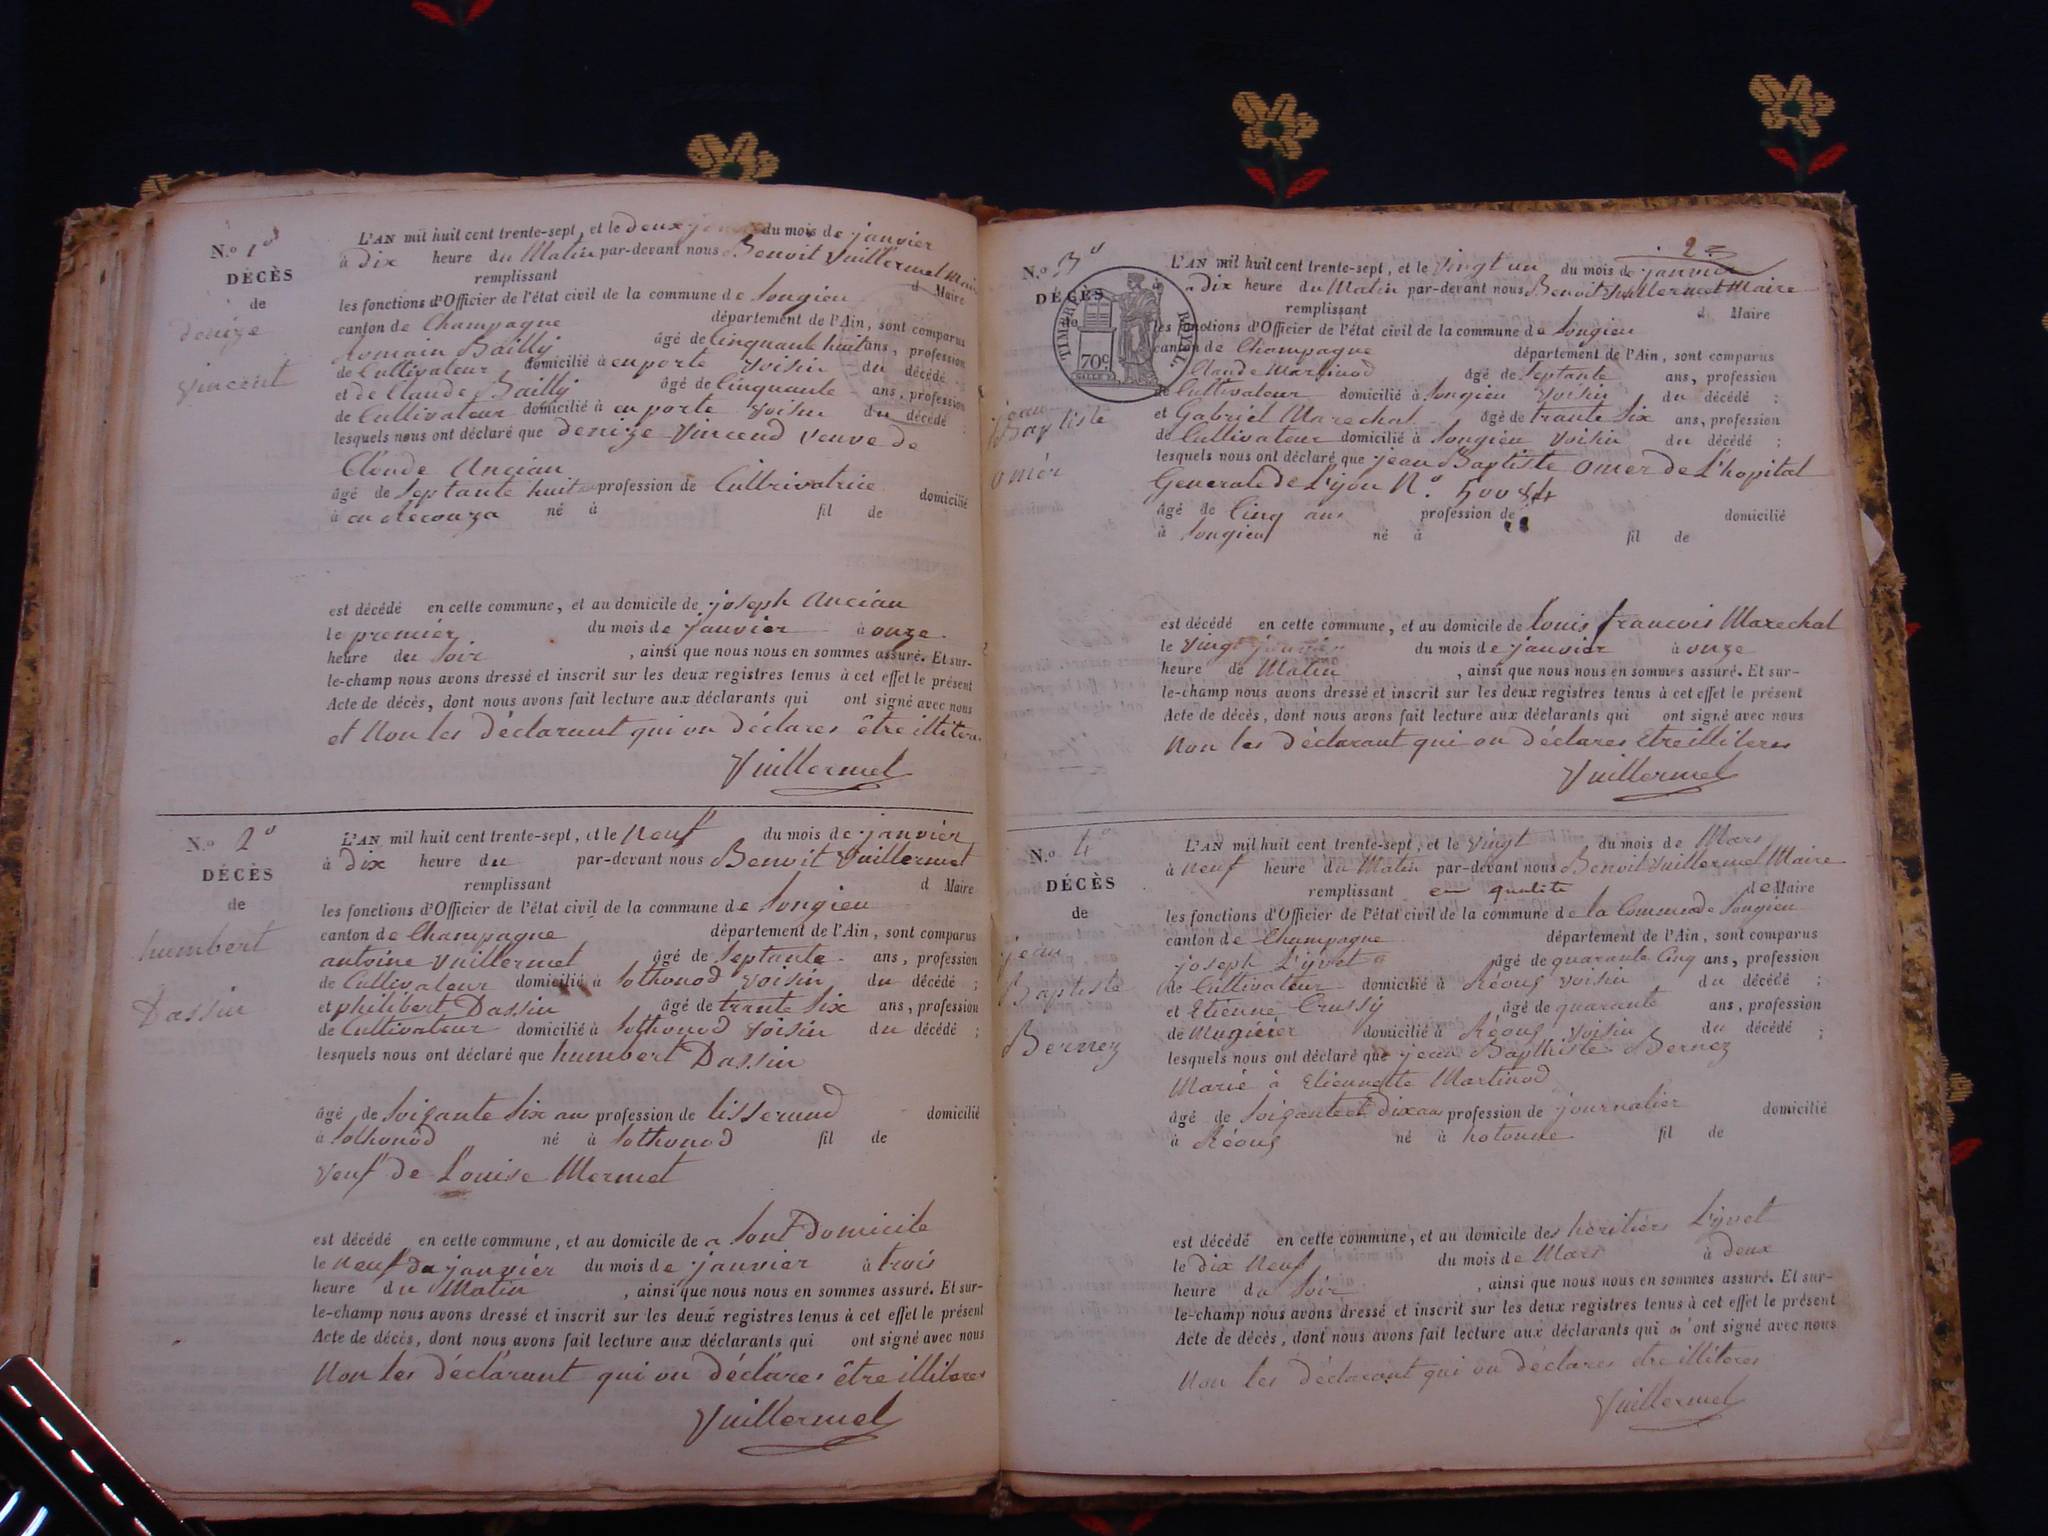 N.o 1o
DÉCÈS
de
denize
vincent
L'AN mil huit cent trente-sept, et le deux du mois de janvier
à dix heure du Matin par-devant nous Benoit Vuillermet Maire
remplissant d Maire
les fonctions d'Officier de l'état civil de la commune de Songieu
canton de Champagne département de l'Ain, sont comparus
Romain Bailly âgé de Cinquante huit ans, profession
de Cultivateur domicilié à en porte voisin du décédé
et de Claude Bailly âgé de Cinquante ans, profession
de Cultivateur domicilié à en porte voisin du décédé
lesquels nous ont déclaré que denize Vincend veuve de
Cloude Ancian
âgé de Septante huit profession de Cultrivatrice domicilié
à né à fil de
est décédé en cette commune, et au domicile de joseph Ancian
le premier du mois de janvier à onze
heure du soir , ainsi que nous nous en sommes assuré. Et sur-
le-champ nous avons dressé et inscrit sur les deux registres tenus à cet effet le présent
Acte de décès, dont nous avons fait lecture aux déclarants qui ont signé avec nous
et Non les déclarant qui on déclares être illitere
Vuillermet
N.o 2o
DÉCÈS
de
humbert
Dassin
L'AN mil huit cent trente-sept, et le Neuf du mois de janvier
à dix heure du par-devant nous Benoit Vuillermet
remplissant d Maire
les fonctions d'Officier de l'état civil de la commune de Songieu
canton de Champagne département de l'Ain, sont comparus
antoine Vuillermet âgé de Septante ans, profession
de Cultivateur domicilié à Sothonod voisin du décédé ;
et philibert Dassin âgé de trante Six ans, profession
de Cultivateur domicilié à Sothonod voisin du décédé ;
lesquels nous ont déclaré que humbert Dassin
âgé de Soigante Six ans profession de tisserand domicilié
à Sothonod né à Sothonod fil de
veuf de Louise Mermet
est décédé en cette commune, et au domicile de a Sont Domicile
le Neuf du janvier du mois de janvier à trois
heure du Matin , ainsi que nous nous en sommes assuré. Et sur-
le-champ nous avons dressé et inscrit sur les deux registres tenus à cet effet le présent
Acte de décès, dont nous avons fait lecture aux déclarants qui ont signé avec nous
Non les déclarant qui on déclares être illiteres
Vuillermet
2
N.o 3o
DÉCÈS
de
TIMBRE ROYAL
70c
jean
Baptiste
omér
L'AN mil huit cent trente-sept, et le vingt un du mois de janvier
à dix heure du Matin par-devant nous Benoit Vuillermet Maire
remplissant d Maire
les fonctions d'Officier de l'état civil de la commune de Songieu
canton de Champagne département de l'Ain, sont comparus
Claude Martinod âgé de Septante ans, profession
de Cultivateur domicilié à Songieu voisin du décédé ;
et Gabriel Marechal âgé de trante Six ans, profession
de Cultivateur domicilié à Songieu voisin du décédé ;
lesquels nous ont déclaré que jean Baptiste Omer de L'hopital
Generale de Lyon N.o
âgé de Cinq ans profession de domicilié
à Songieu né à fil de
est décédé en cette commune, et au domicile de Louis francois Marechal
le vingt janvier du mois de janvier à onze
heure de Matin , ainsi que nous nous en sommes assuré. Et sur-
le-champ nous avons dressé et inscrit sur les deux registres tenus à cet effet le présent
Acte de décès, dont nous avons fait lecture aux déclarants qui ont signé avec nous
Non les déclarant qui on déclares Etre illiteres
Vuillermet
N.o 4o
DÉCÈS
de
jean
Baptiste
Bernez
L'AN mil huit cent trente-sept, et le vingt du mois de Mars
à neuf heure du Matin par-devant nous Benoit Vuillermet Maire
remplissant en qualité de Maire
les fonctions d'Officier de l'état civil de la commune de la Commune de Songieu
canton de Champagne département de l'Ain, sont comparus
joseph Lyvet âgé de quarante Cinq ans, profession
de Cultivateur domicilié à Réoug voisin du décédé ;
et Etienne Crussy âgé de quarante ans, profession
de domicilié à Réoug voisin du décédé ;
lesquels nous ont déclaré que jean Bapthiste Bernez
Marié à Etiennette Martinod
âgé de Soigante et Dix ans profession de journalier domicilié
à Réoug né à hotonne fil de
est décédé en cette commune, et au domicile des heritiers Lyvet
le dix Neuf du mois de Mars à deux
heure du Soir , ainsi que nous nous en sommes assuré. Et sur-
le-champ nous avons dressé et inscrit sur les deux registres tenus à cet effet le présent
Acte de décès, dont nous avons fait lecture aux déclarants qui n'ont signé avec nous
Non les déclarant qui on déclares etre illiteres
Vuillermet